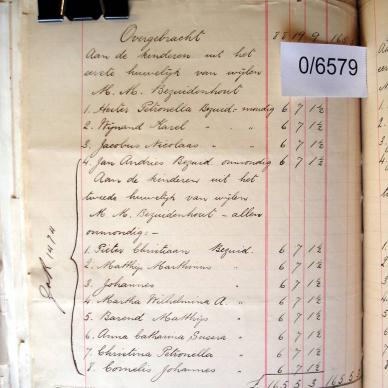 Overgebracht 88 19 9
0/6579
Aan de kinderen uit het
eerste huwelijk van wijlen
M. M. Bezuidenhout
1. Hester Petronella Bezuid: mondig 6 7 1½
2. Wijnand Karel " " 6 7 1½
3. Jacobus Nicolaas " " 6 7 1½
4. Jan Andries Bezuid onmondig 6 7 1½
Aan de kinderen uit het
tweede huwelijk van wijlen
M. M. Bezuidenhout – allen
onmondig:–
1. Pieter Christiaan Bezuid. 6 7 1½
2. Matthijs Marthinus " 6 7 1½
3. Johannes " 6 7 1½
4. Martha Wilhelmina A. " 6 7 1½
5. Barend Matthijs " 6 7 1½
6. Anna Catharina Susera " 6 7 1½
7. Christina Petronella " 6 7 1½
8. Cornelis Johannes " 6 7 1½
165 5 3